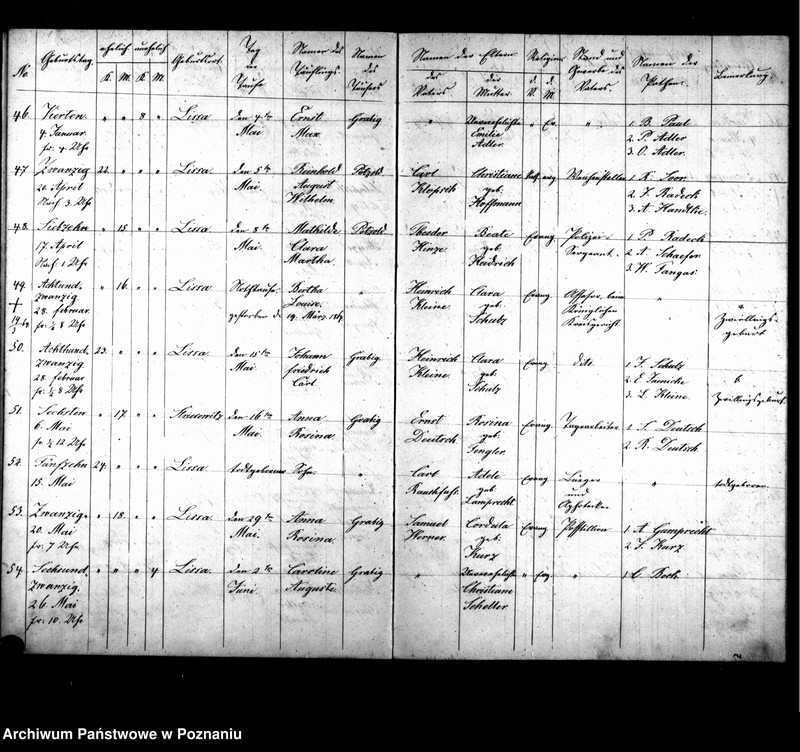 No
Geburtstag.
ehelich
unehelich
K. M. K. M.
Geburtsort.
Tag
der
Taufe
Namen des
Täuflings.
Namen
des
Täufers
Namen der Eltern
des
Vaters.
der
Mutter.
Religion
d. V. d. M.
Stand und
Gewerbe des
Vaters.
Namen der
Pathen.
Bemerkung.
46. Vierten " " 8 " Lissa den 4ten Ernst Gratig " Unverehelichte " Ev. " 1 B. Paul
4. Januar. Mai Max Emilie 2. P. Adler
fr. 4 Uhr Adler. 3. O. Adler.
47 Zwanzig 22. " " " Lissa. den 5ten Reinhold Petzold Carl Christiane 1 R.
20. April Mai. August Klopsch geb. 2. F. Radeck
Nach. 3. Uhr Wilhelm Hoffmann 3. A. Handtke.
48. Siebzehn " 15 " " Lissa den 8te Mathilde Petzold Theodor Beate Evang. Polizei- 1. P. Radeck
17. April Mai. Clara Hinze. geb. Sergeant. 2. A. Schaefer
Nach. 1 Uhr Martha Heidrich 3. W. Langas
49. Achtund " 16. " " Lissa. Bertha " Heinrich Clara Evang.
zwanzig Louise. Kleine. geb. Königlichen a
28. februar. gestorben d. 19. März 1869 Schulz Zwillings-
fr. 1/2 8 Uhr geburt
50. Achtund 23. " " " Lissa den 15ten Johann Gratig Heinrich Clara Evang. dito 1. F. Schulz
zwanzig Mai. friedrich Kleine. geb. 2. E.
28. februar Carl Schulz 3. L. Kleine. b.
fr. 1/2 8 Uhr Zwillingsgeburt
51. Sechsten " 17 " " Striesewitz den 16ten Anna Gratig Ernst Rosina Evang. 1. S. Deutsch
6. Mai Mai. Rosina. Deutsch geb. 2. R. Deutsch
fr. 1/2 12 Uhr Fengler.
52. Fünfzehn 24. " " " Lissa todtgeborener Sohn " Carl Adele Evang Bürger " todtgeboren
15. Mai geb. und
Lamprecht Apotheker.
53. Zwanzig. " 18. " " Lissa den 29ten Anna Gratig Samuel Cordula Evang 1. A. Gumprecht
20. Mai Mai. Rosina. Werner. geb. 2. F. Kurz
fr. 7 Uhr Kurz
54. Sechsund. " " " 4 Lissa. den 2te Caroline Gratig " Unverehelichte " Evg. " 1 C. Bock
zwanzig. Juni. Auguste. Christiane
26. Mai Scheller.
fr. 10. Uhr
Archiwum Państwowe w Poznaniu